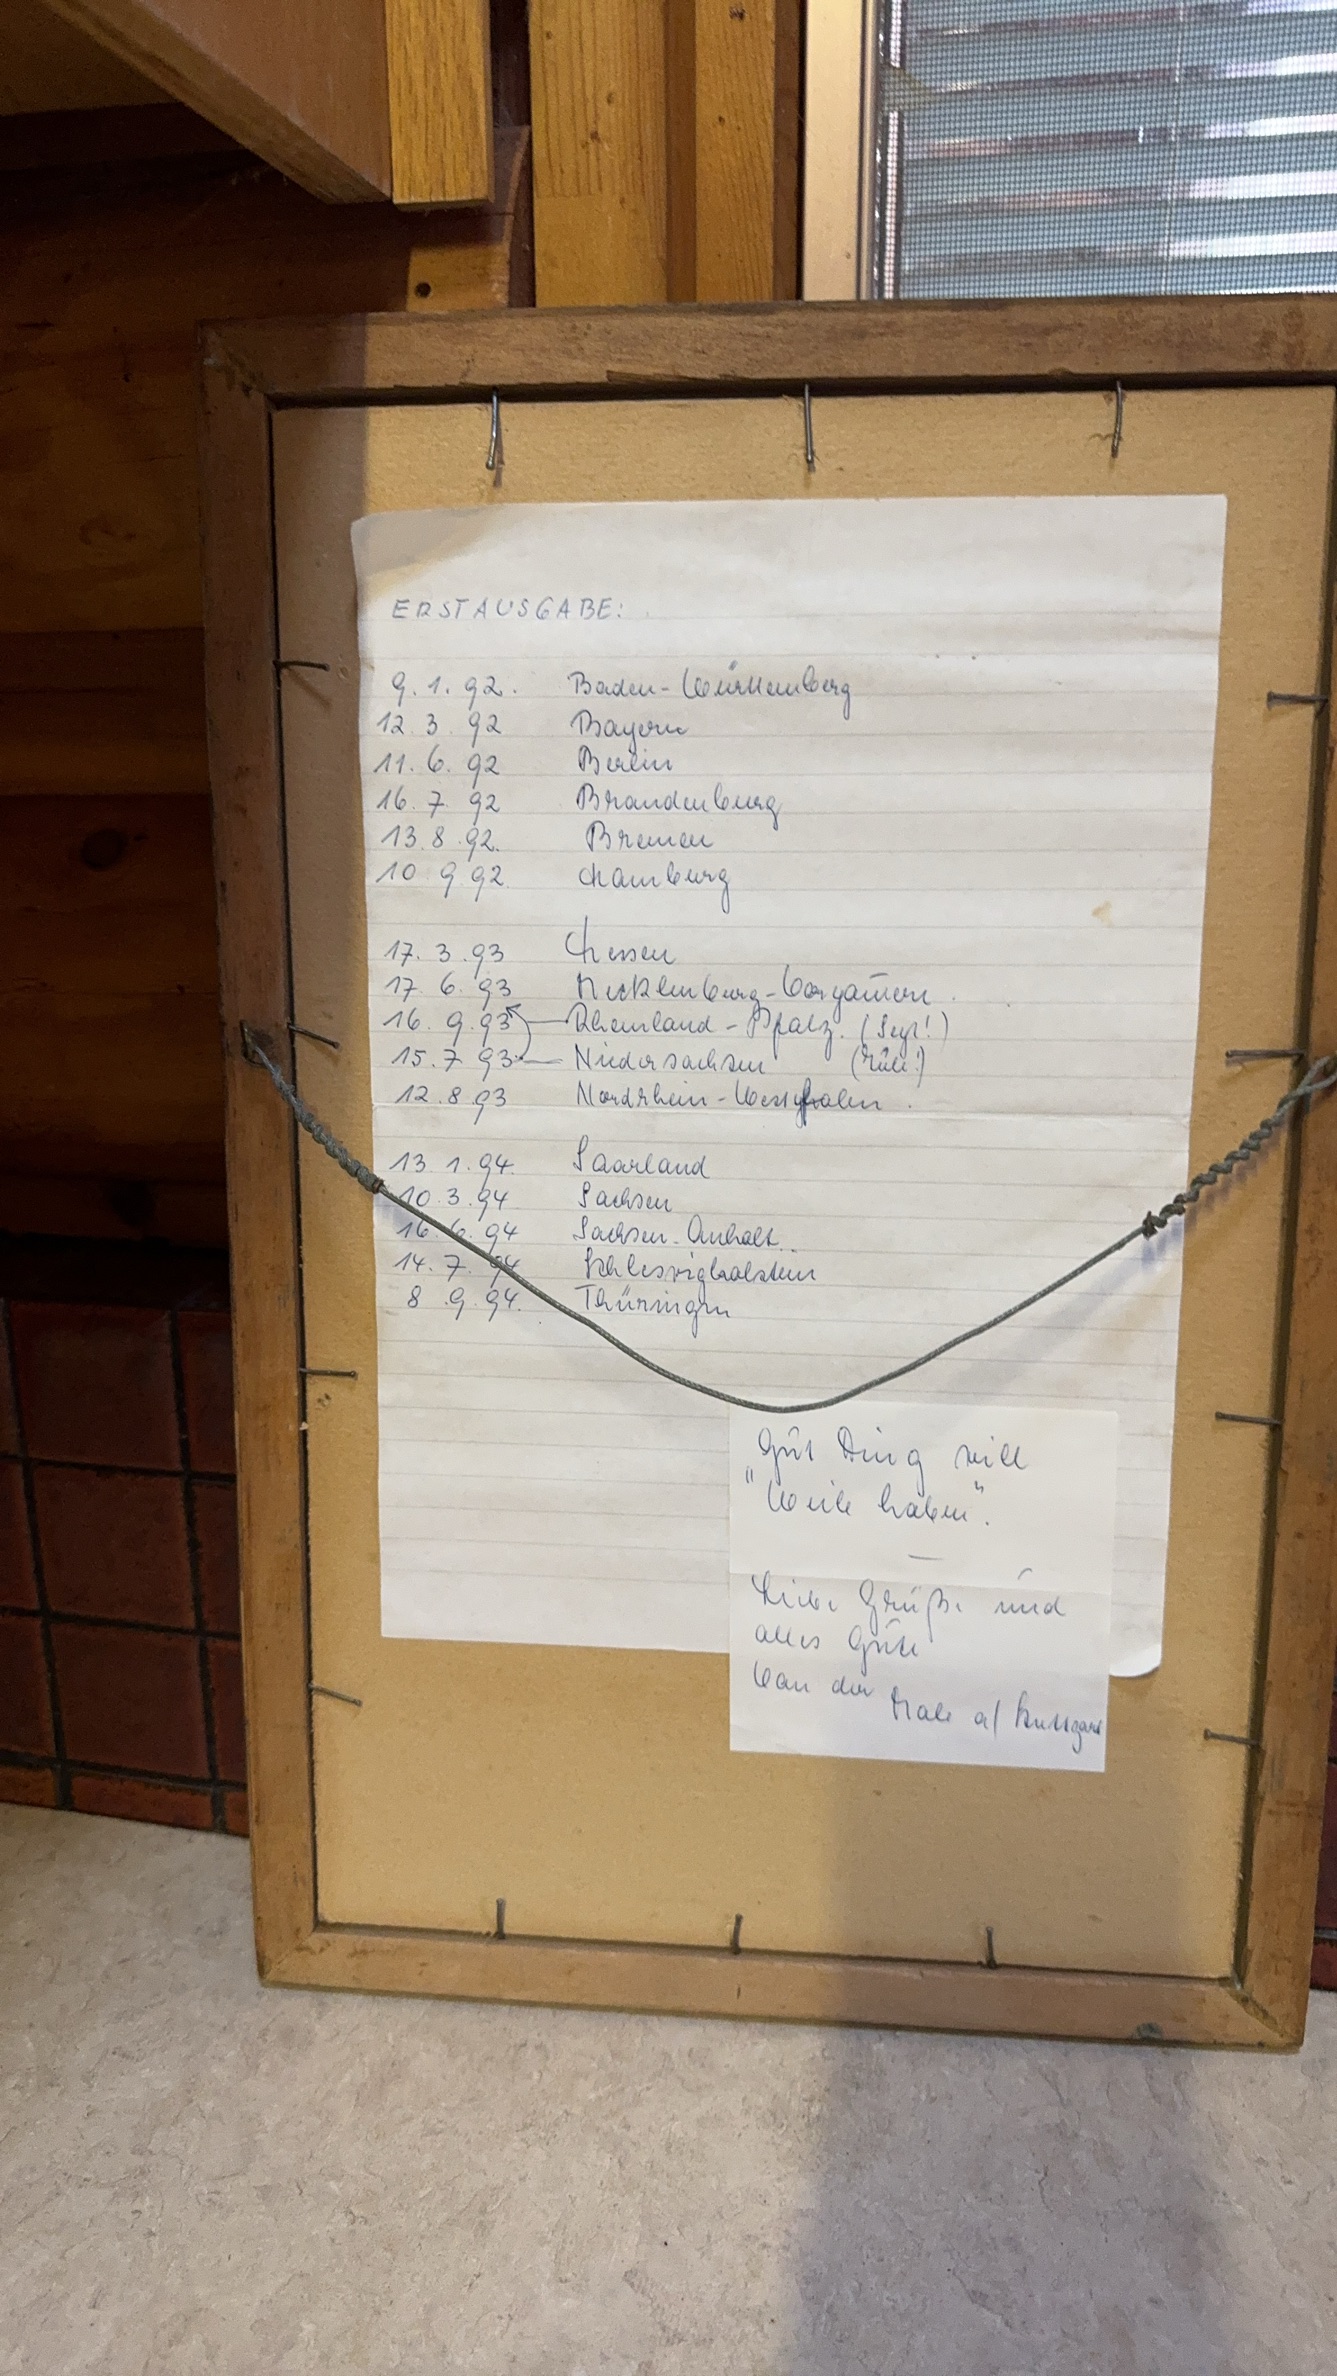 ERSTAUSGABE:
9. 1. 92. Baden-Württemberg
12. 3. 92 Bayern
11. 6. 92 Berlin
16. 7 92 Brandenburg
13. 8. 92. Bremen
10 9 92. Hamburg
17. 3. 93 Hessen
17. 6. 93 Mecklenburg-Vorpomern.
16. 9. 93 Rheinland-Pfalz. (Sept!)
15. 7 93 Niedersachsen (Juli!)
12. 8. 93 Nordrhein-Westfalen.
13 1. 94. Saarland
10. 3. 94 Sachsen
16. 6. 94 Sachsen-Anhalt.
14. 7. 94 Schlesvigholstein
8 9. 94. Thüringen
Gut Ding will
"Weile haben".
Liebe Grüße und
alles Gute
von der